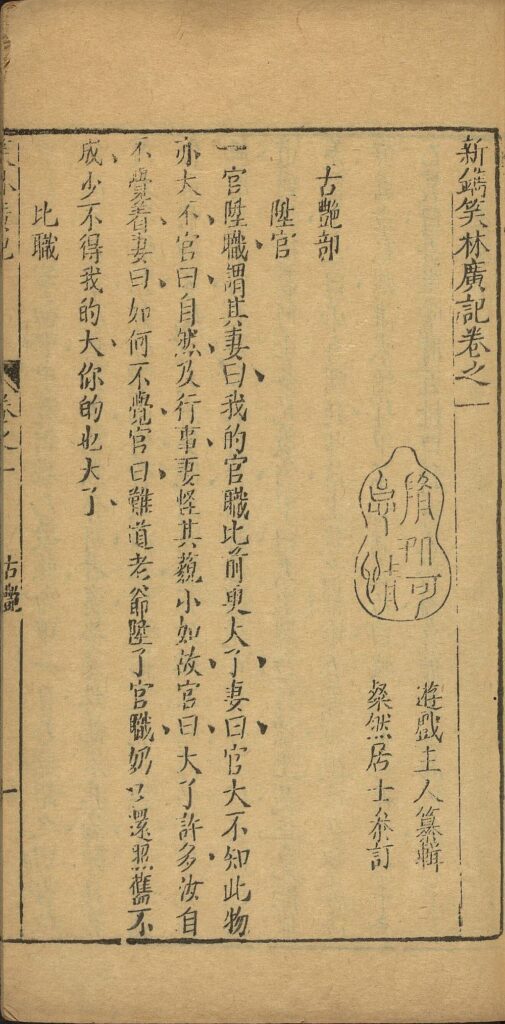 新鐫笑林廣記卷之一
遊戲主人纂輯
粲然居士叅訂
古艷部
陞官
一官陞職謂其妻曰我的官職比前更大了妻曰官大不知此物
亦大不官曰自然及行事妻怪其藐小如故官曰大了許多汝自
不覺着妻曰如何不覺官曰難道老爺陞了官職奶〻還照舊不
成少不得我的大你的也大了
比職
卷之一
古艷
一